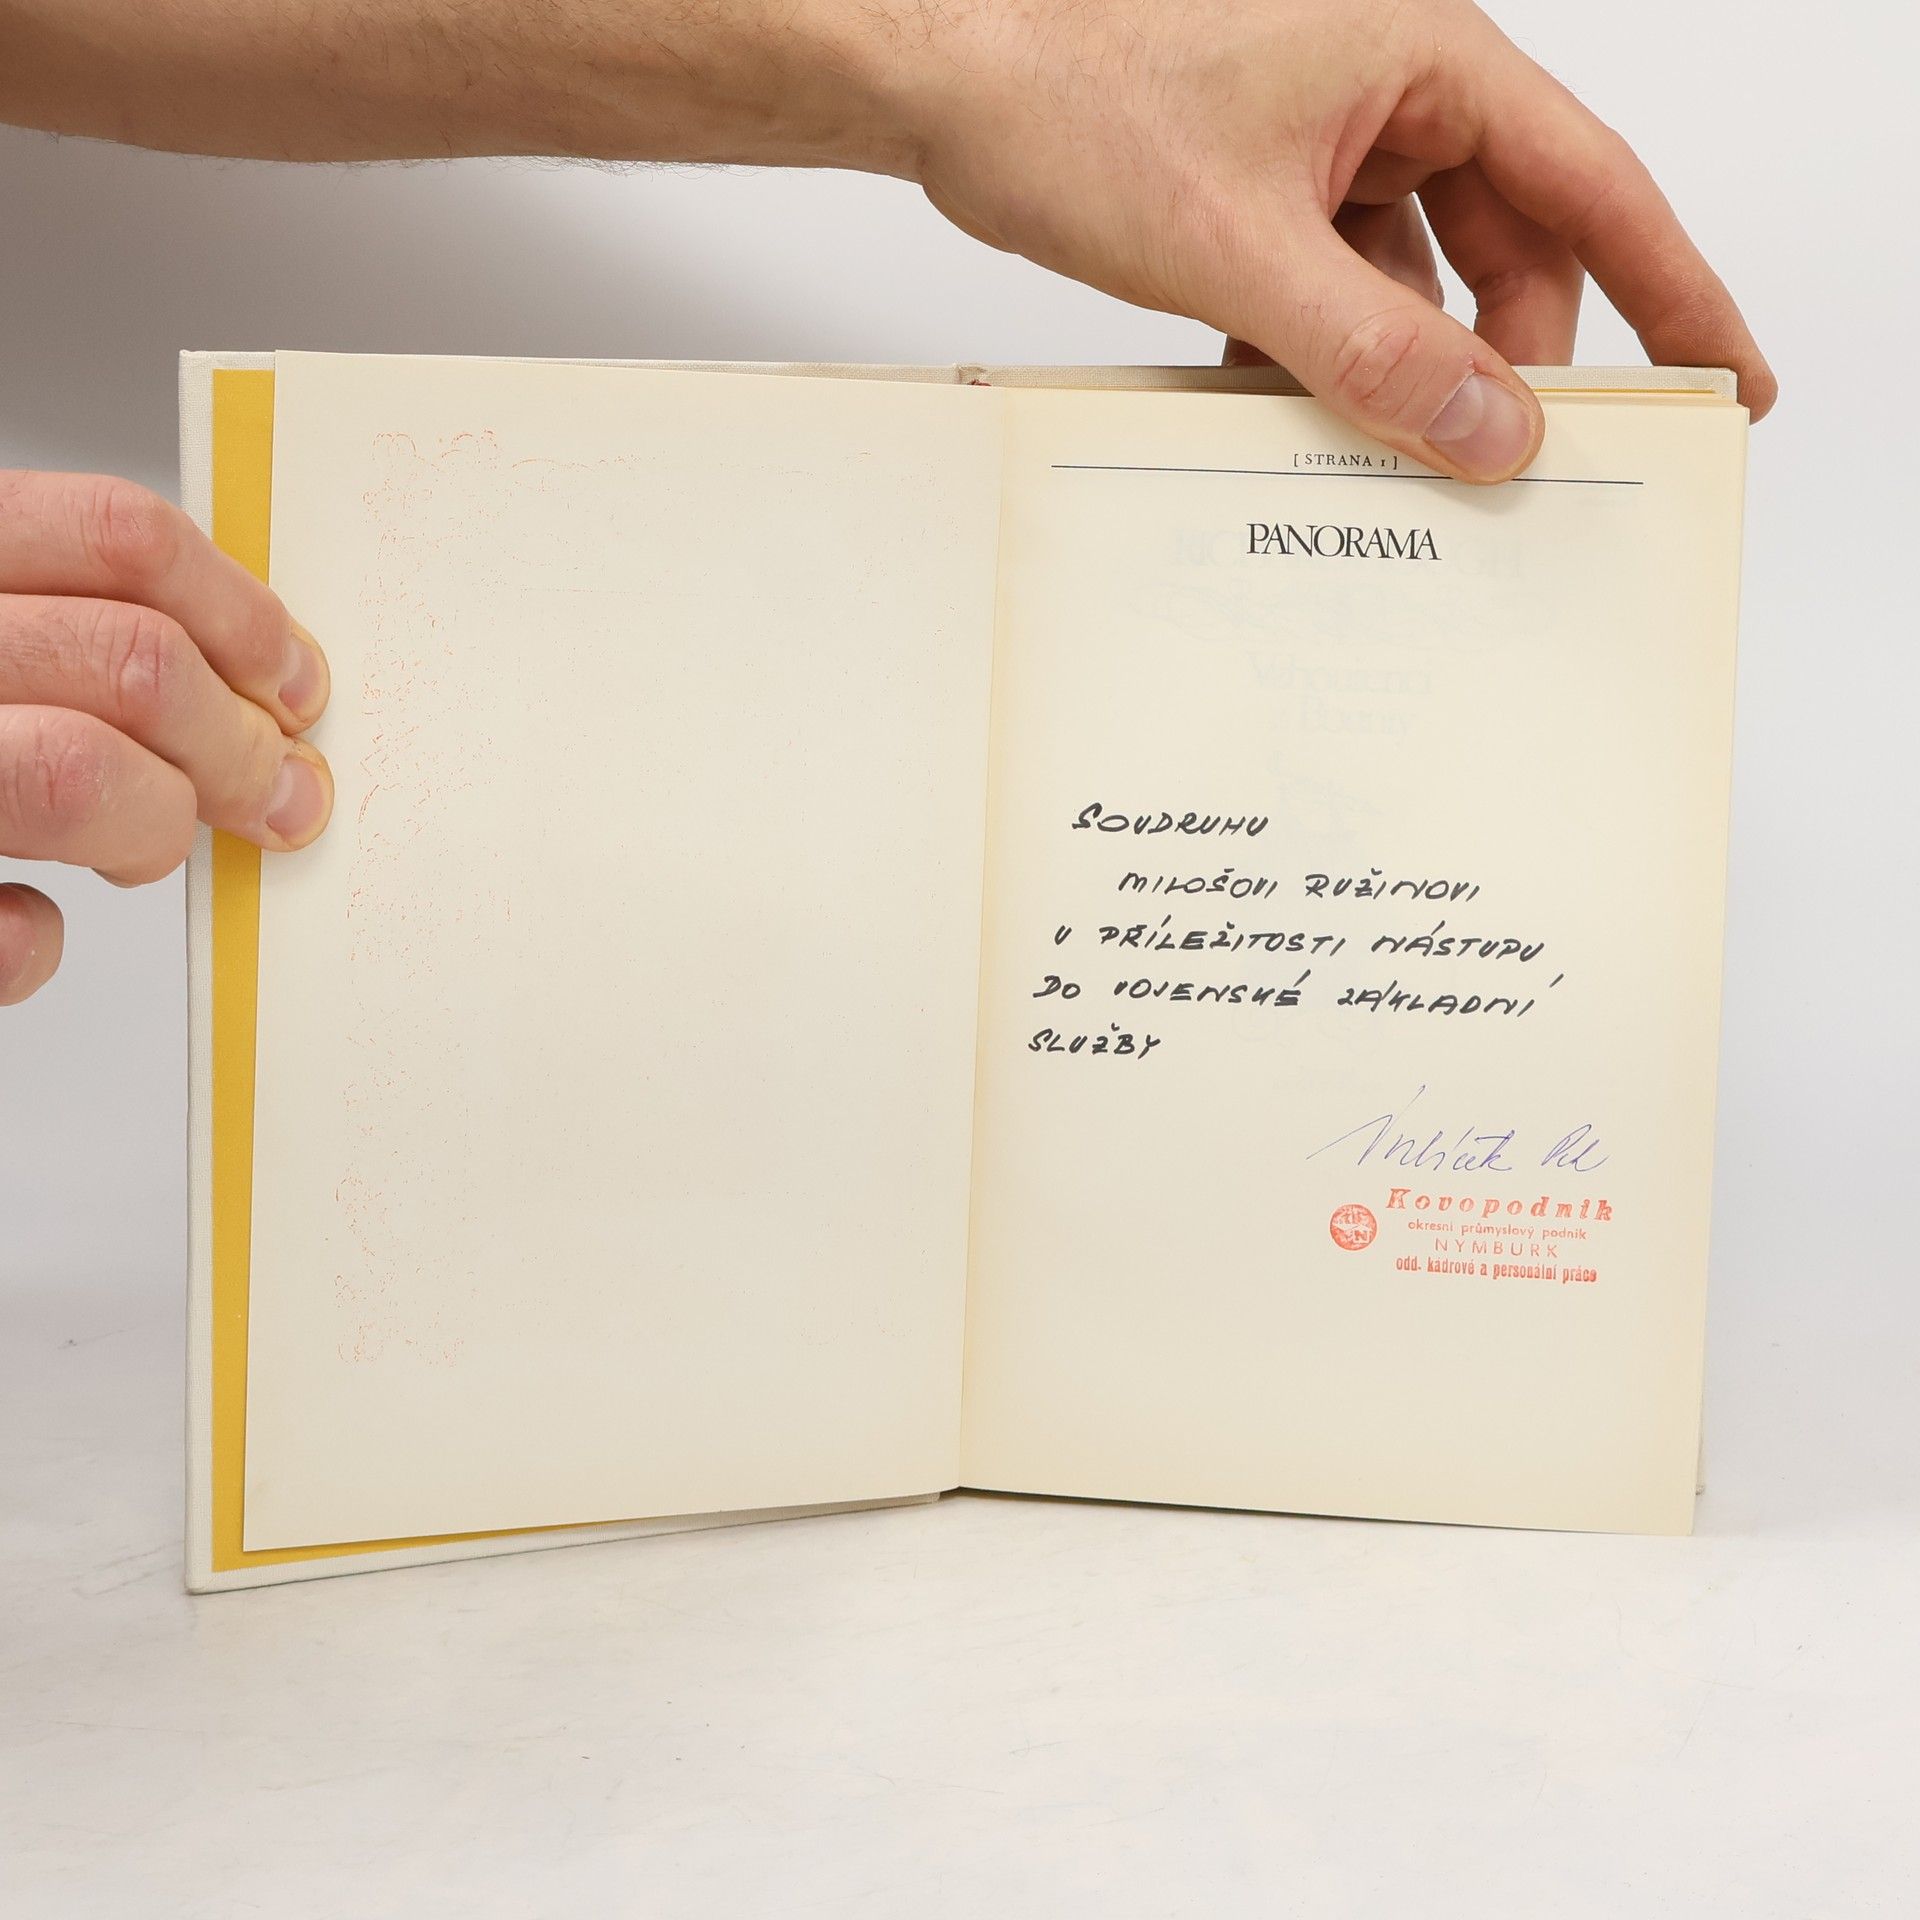 [ STRANA 1 ]
PANORAMA
SOUDRUHU
MILOŠOVI RUŽINOVI
U PŘÍLEŽITOSTI NÁSTUPU
DO VOJENSKÉ ZÁKLADNÍ
SLUŽBY
Kovopodnik
okresní průmyslový podnik
NYMBURK
odd. kádrové a personální práce